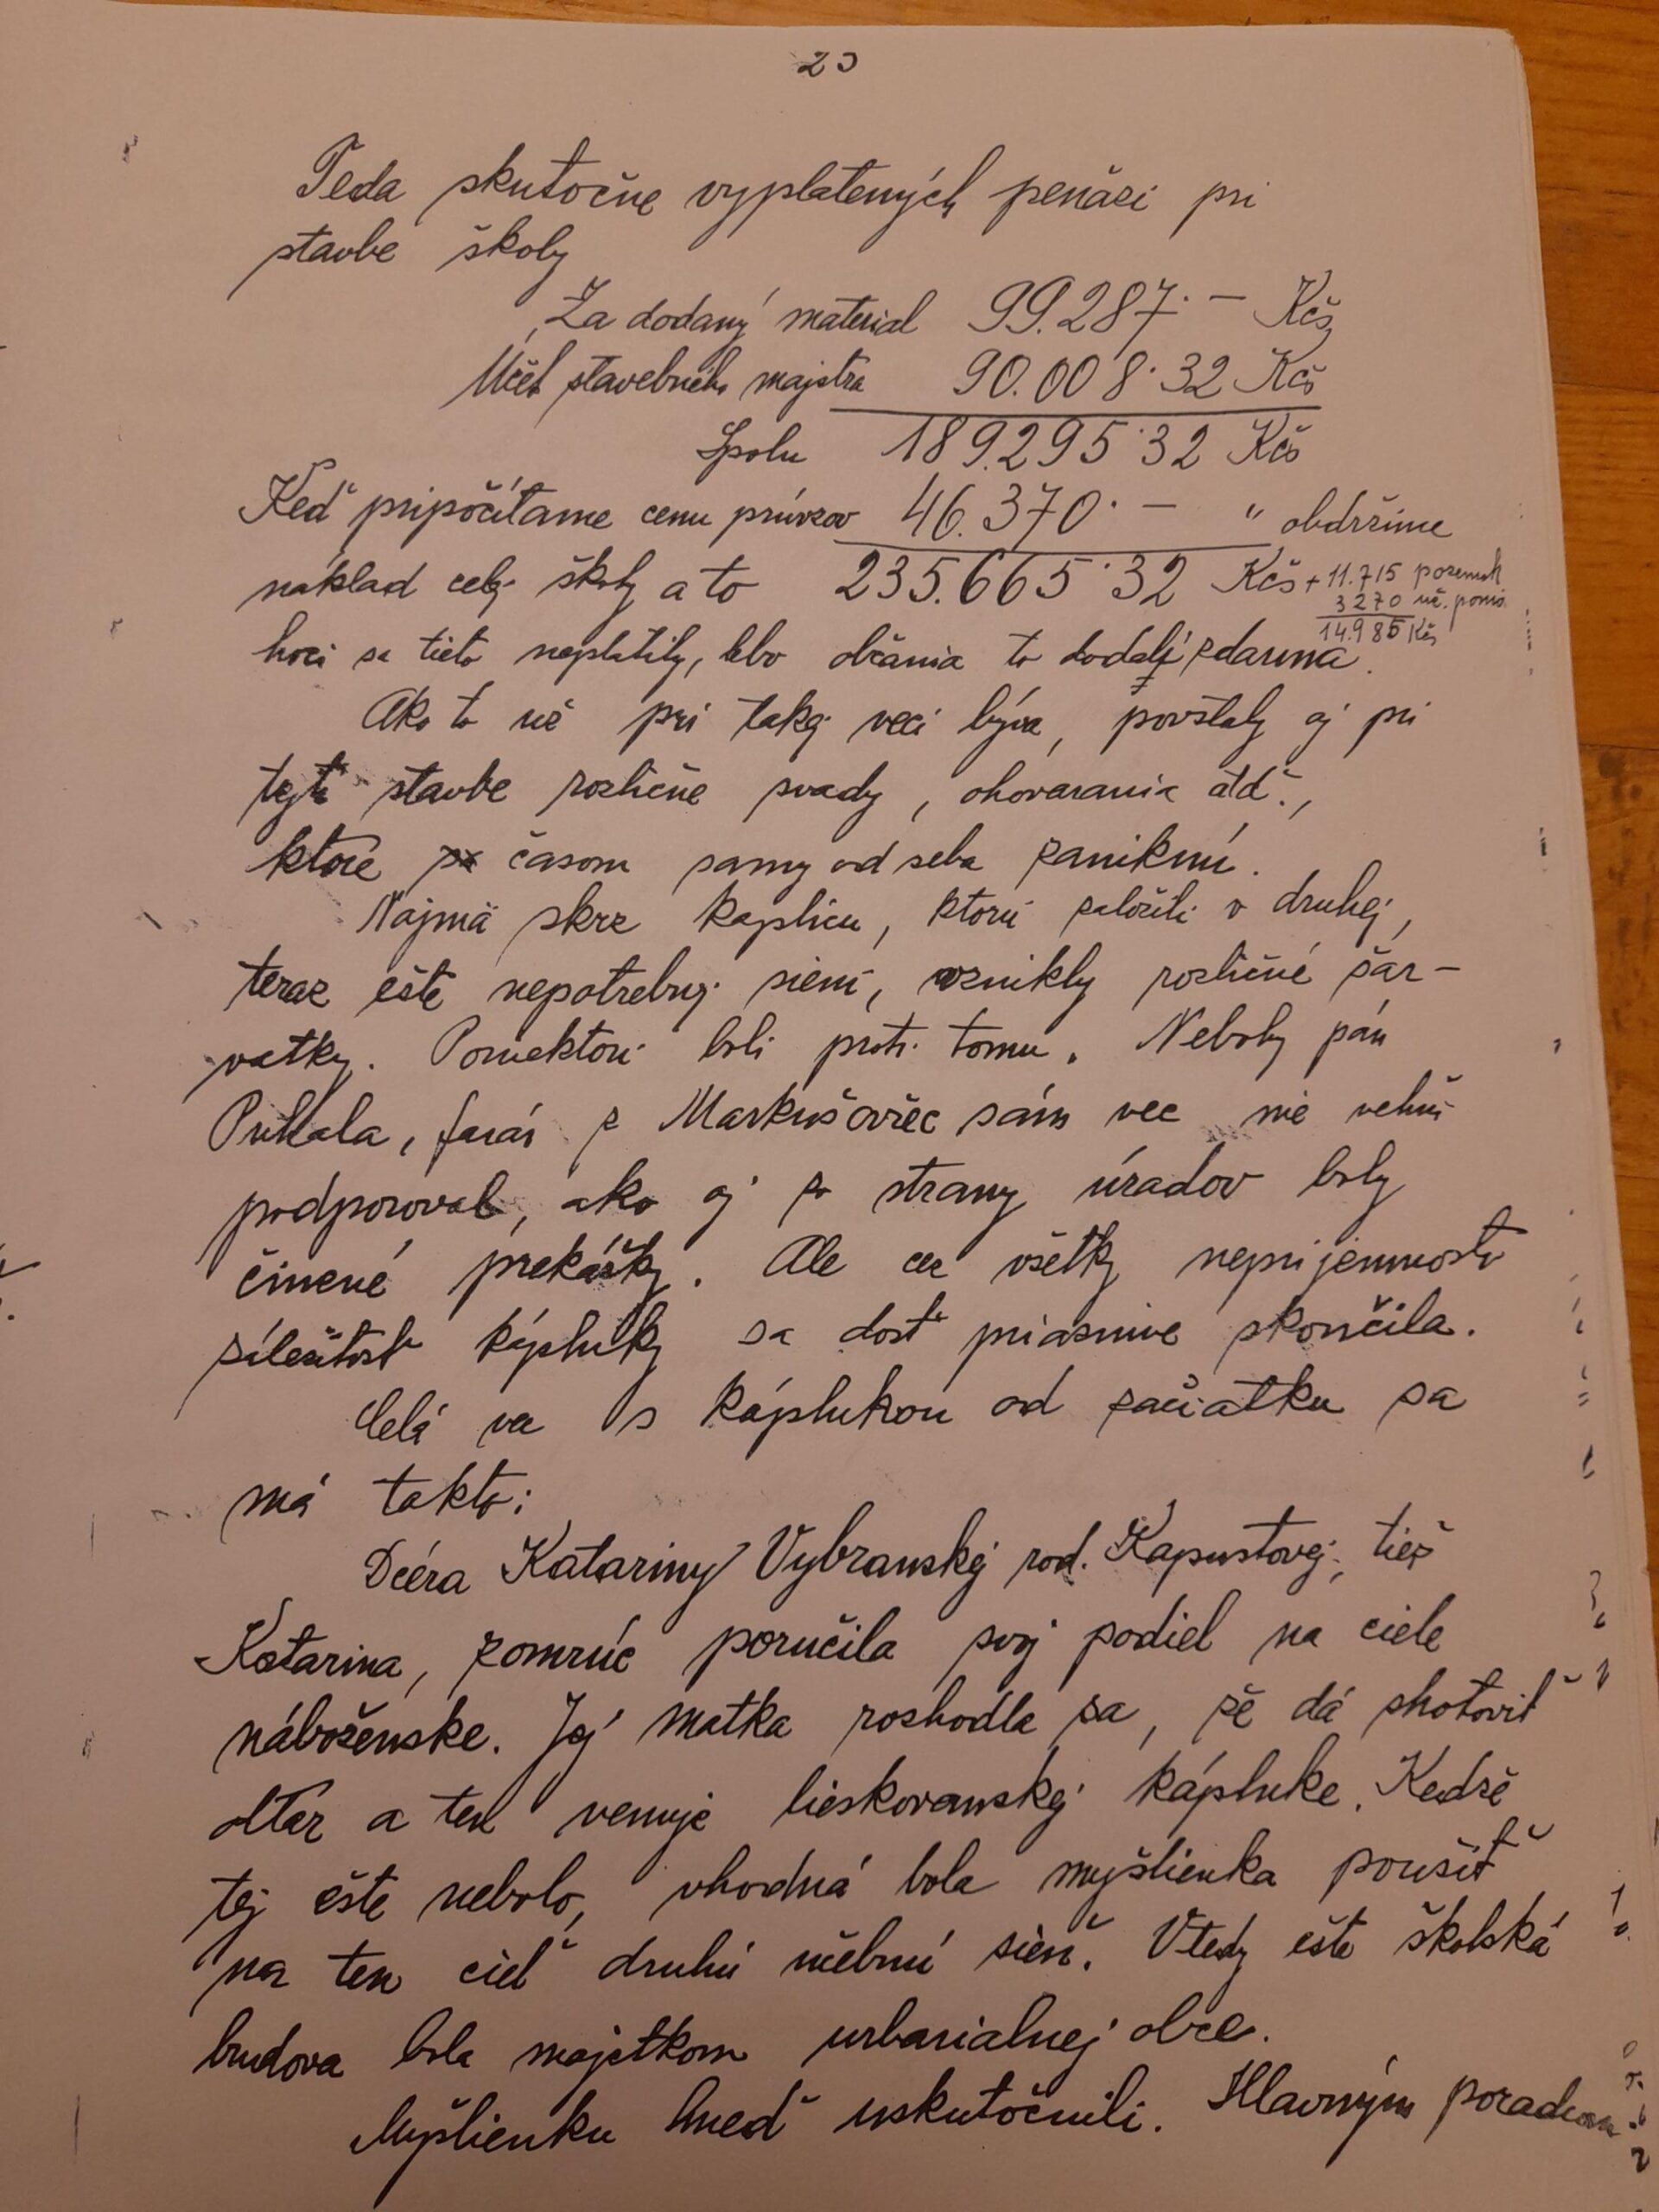 Teda skutočne vyplatených penäzi pri
stavbe školy
Za dodaný material 99.287·— Kčs
Účet stavebného majstra 90.008·32 Kčs
Spolu 189.295·32 Kčs
Keď pripočítame cenu prívozov 46.370·— " obdržíme
náklad celej školy a to 235.665·32 Kčs + 11.715 pozemok
3270 uč. pomô.
14.985 Kčs
hoci sa tieto neplatily, lebo občania to dodali zdarma.
Ako to už pri takej veci býva, povstaly aj pri
tejto stavbe rozličné svady, ohovarania atď.,
ktoré časom samy od seba zaniknú.
Najmä skrz kaplicu, ktorú založili v druhej,
teraz ešte nepotrebnej sieni, vznikly rozličné šar-
vatky. Poniektorí boli proti tomu. Nebohý pán
Puhala, farár z Markušoviec sám vec nie veľmi
podporoval, ako aj zo strany úradov boly
činené prekážky. Ale cez všetky neprijemnosti
záležitosť káplnky sa dosť priaznive skončila.
Celá vec s káplnkou od začiatku sa
má takto:
Dcéra Katariny Vybranskej rod. Kapustovej, tiež
Katarina, zomrúc poručila svoj podiel na ciele
náboženske. Jej matka rozhodla sa, že dá zhotoviť
oltár a ten venuje lieskovanskej káplnke. Kedže
tej ešte nebolo, vhodná bola myšlienka použiť
na ten cieľ druhú učebnú sieň. Vtedy ešte školská
budova bola majetkom urbarialnej obce.
Myšlienku hneď uskutočnili. Hlavným